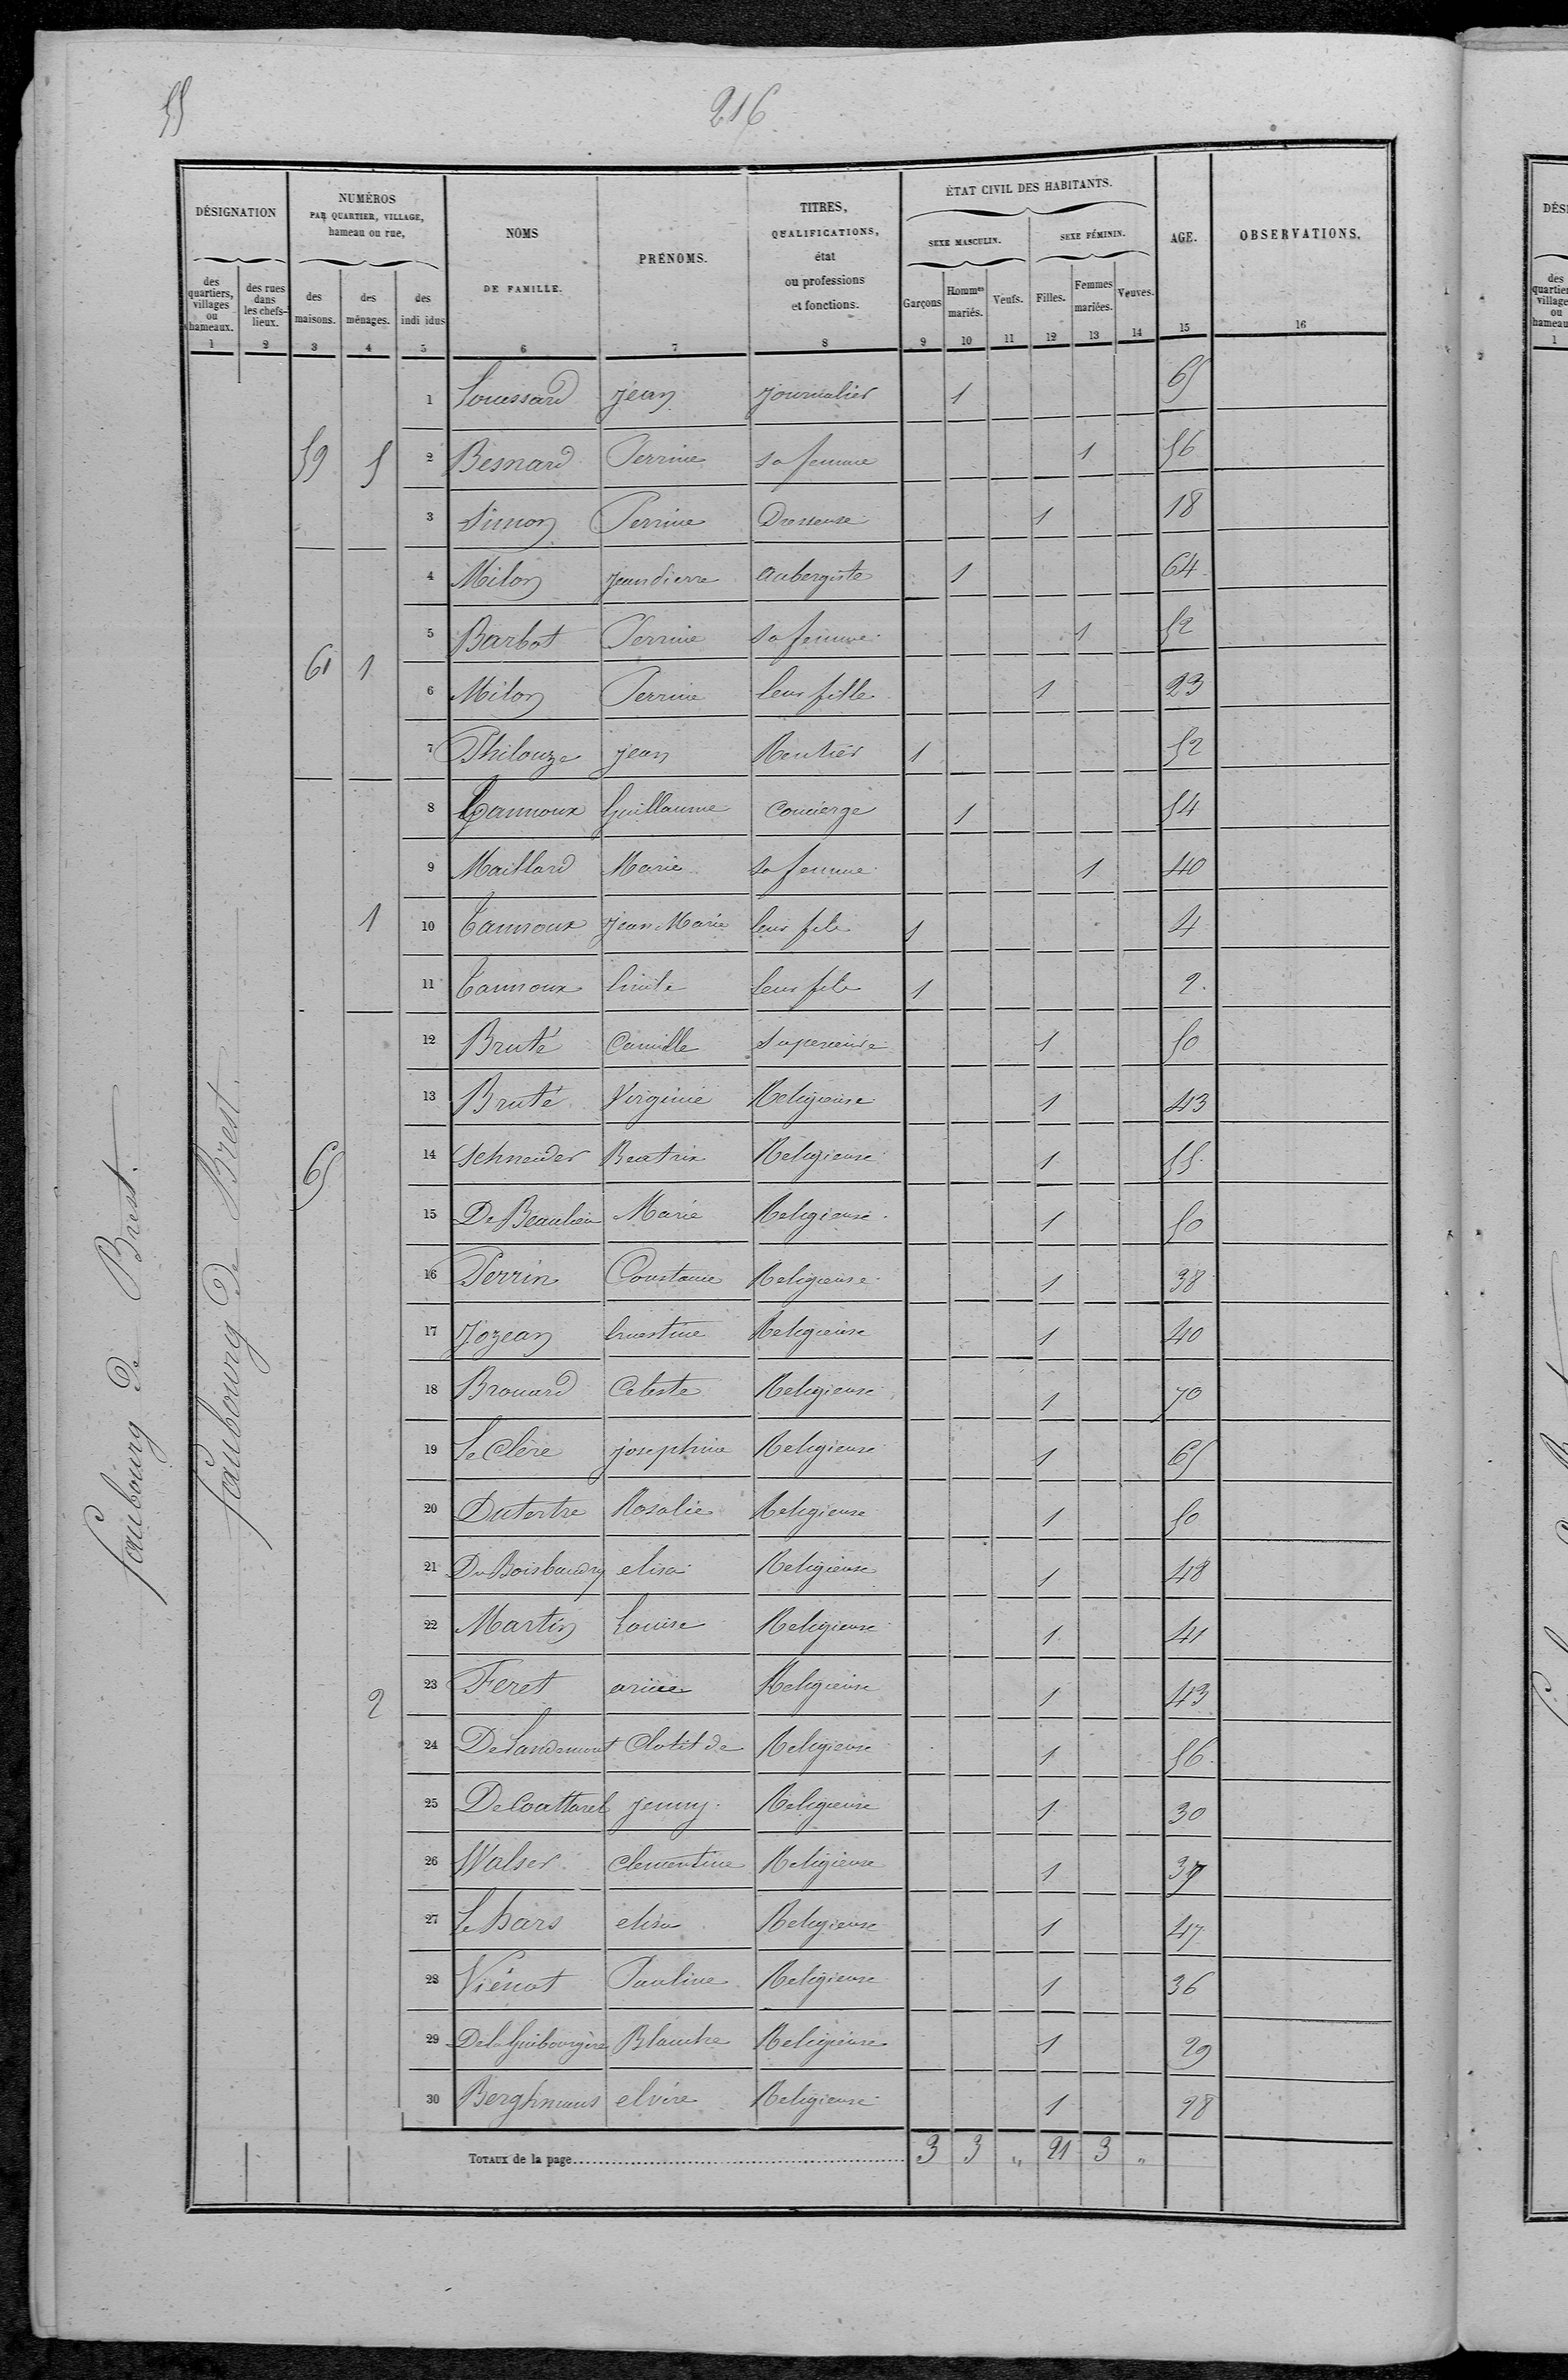 55
216
DÉSIGNATION
NUMÉROS
PAR QUARTIER, VILLAGE,
hameau ou rue,
NOMS
DE FAMILLE.
PRÉNOMS.
TITRES,
QUALIFICATIONS,
état
ou professions
et fonctions.
ÉTAT CIVIL DES HABITANTS.
SEXE MASCULIN.
SEXE FÉMININ.
AGE.
OBSERVATIONS.
des quartiers, villages ou hameaux.
des rues dans les chefs-lieux.
des maisons.
des ménages.
des indi idus
Garçons
Hommes mariés.
Veufs.
Filles.
Femmes mariées.
Veuves.
1 2 3 4 5 6 7 8 9 10 11 12 13 14 15 16
faubourg de Brest.
faubourg de Brest.
1 Louessard jean journalier 1 65
59 5 2 Besnard Perrine sa femme 1 56
3 Simon Perrine Dresseuse 1 18
4 Milon jean pierre aubergiste 1 64
5 Barbot Perrine sa femme 1 52
61 1
6 Milon Perrine leur fille 1 23
7 Philouze jean Rentier 1 52
8 Tannoux Guillaume Concierge 1 54
9 Maillard Marie sa femme 1 40
1 10 Tannoux jean Marie leur fils 1 4
11 Tannoux Emile leur fils 1 2
12 Bruté Camille Superieure 1 50
13 Bruté Virginie Religieuse 1 43
65 14 Schneider Beatrix Religieuse 1 55
15 De Beaulieu Marie Religieuse 1 50
16 Perrin Constance Religieuse 1 38
17 Jozean Ernestine Religieuse 1 40
18 Brouard Celeste Religieuse 1 70
19 Le Clère josephine Religieuse 1 65
20 Dutertre Rosalie Religieuse 1 50
21 Du Boisbaudry elisa Religieuse 1 48
22 Martin Louise Religieuse 1 41
2 23 Feret Religieuse 1 43
24 De Landemont Clotilde Religieuse 1 56
25 De Coattarel jenny Religieuse 1 30
26 Walser Clementine Religieuse 1 37
27 Le hars elisa Religieuse 1 47
28 Viénot Pauline Religieuse 1 36
29 De la Guibourgère Blanche Religieuse 1 29
30 Berghmans elvire Religieuse 1 28
TOTAUX de la page 3 3 „ 21 3 „